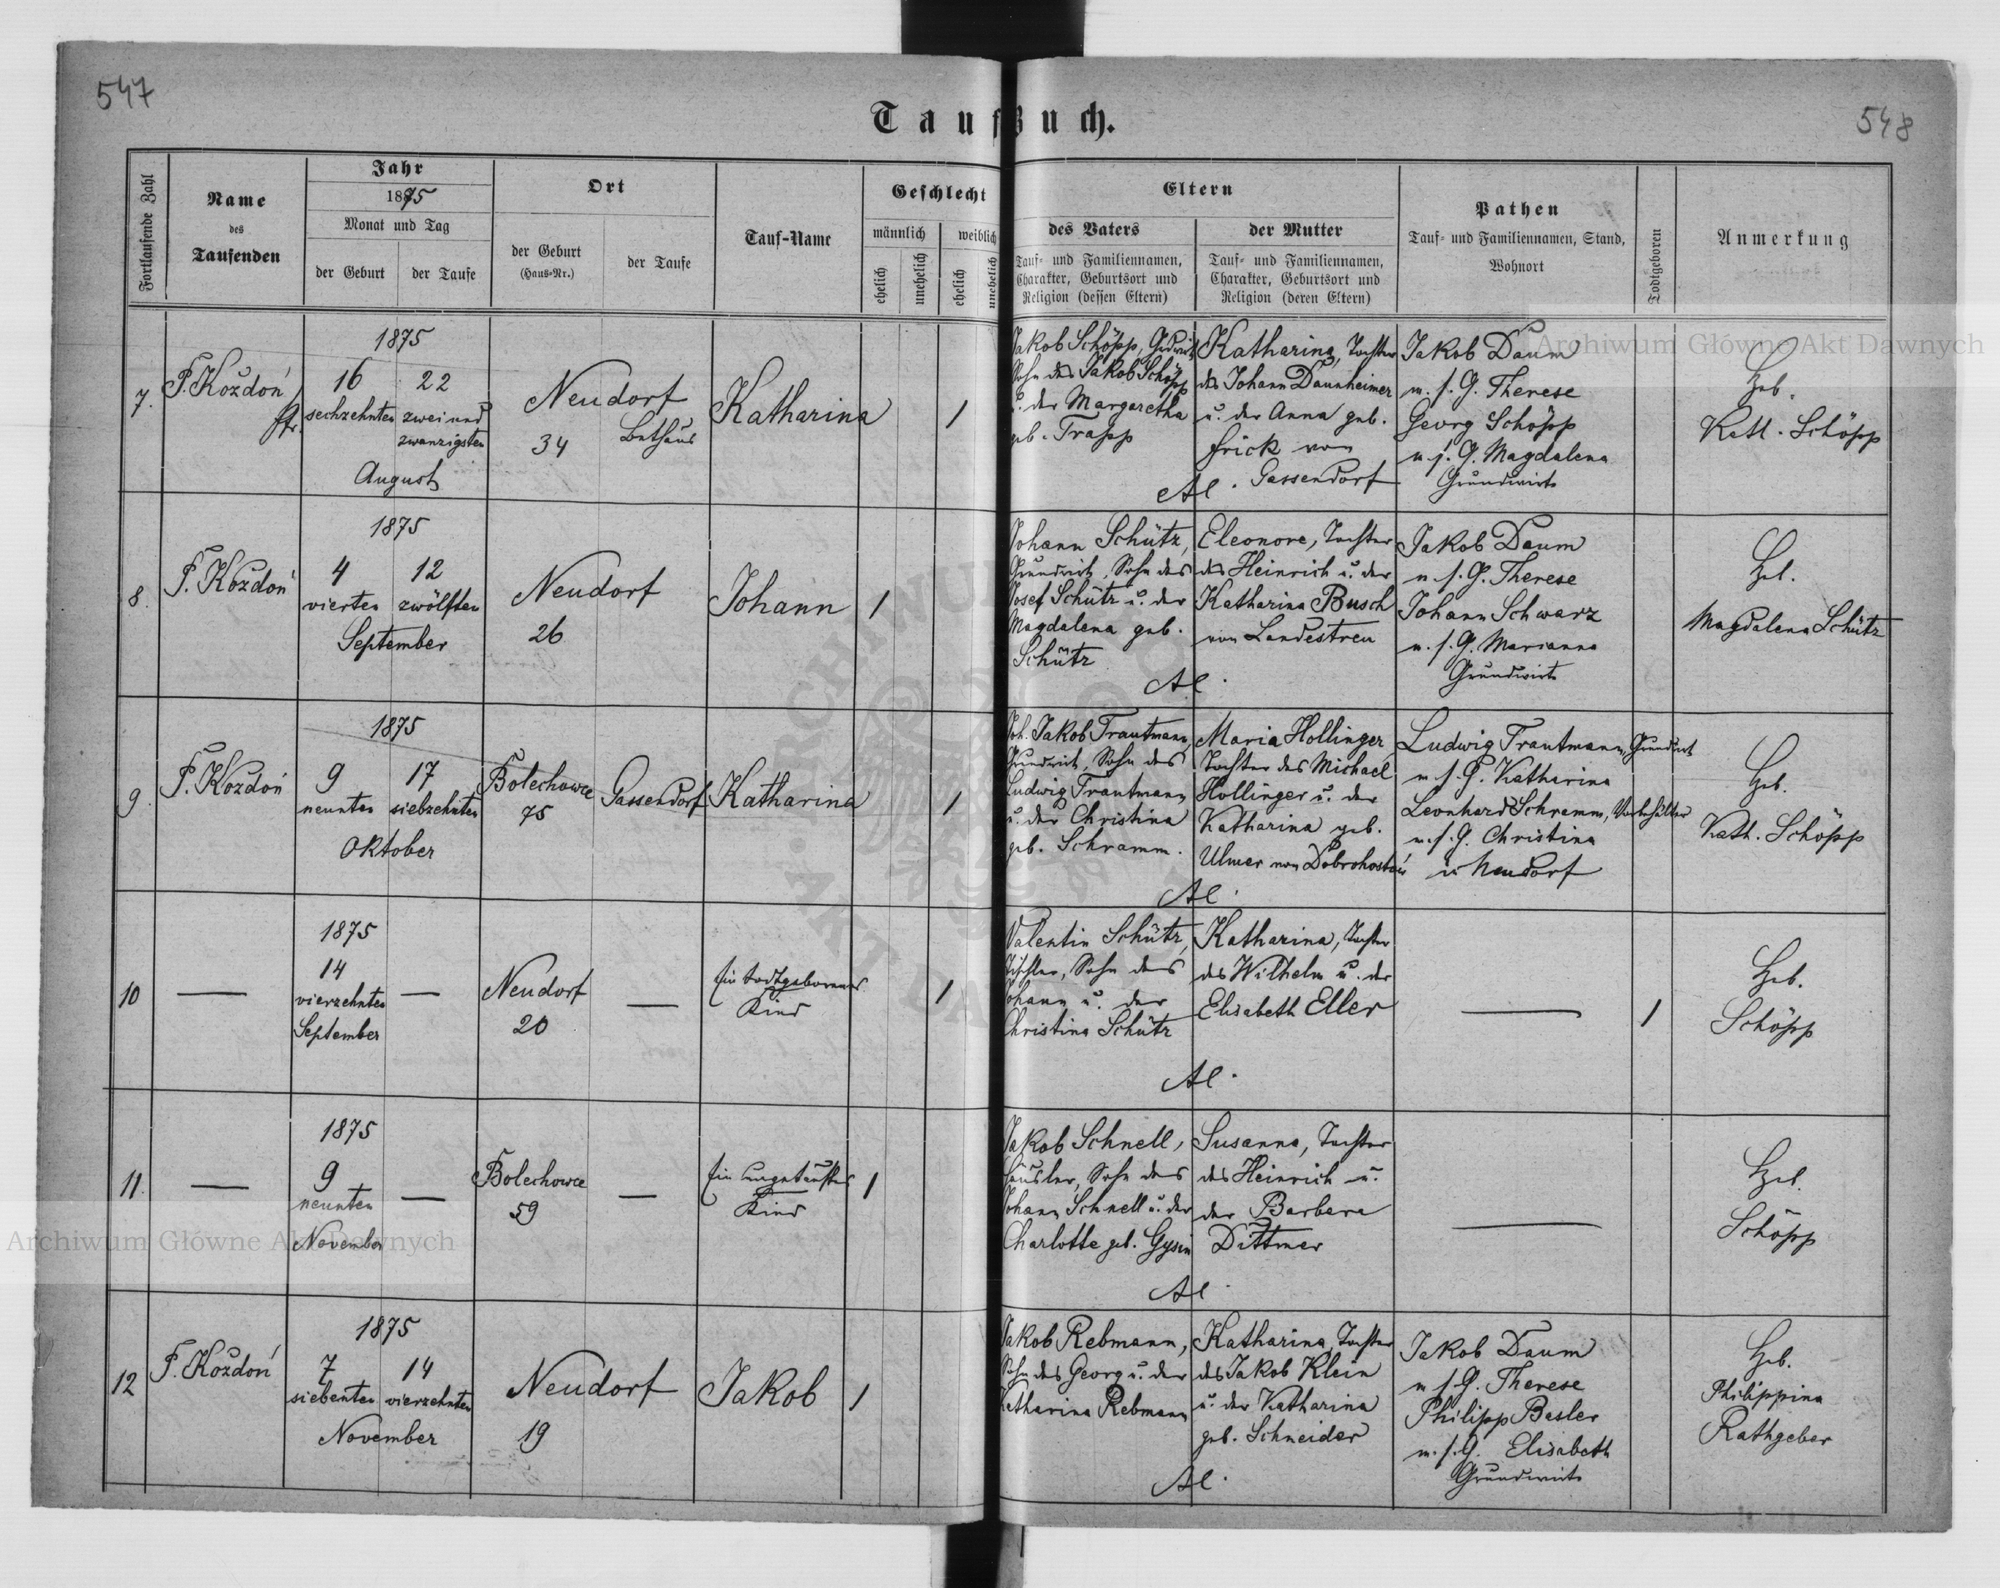 547
548
Taufbuch.
Fortlaufende Zahl
Name
des
Taufenden
Jahr
1875
Monat und Tag
der Geburt
der Taufe
Ort
der Geburt
(Haus-Nr.)
der Taufe
Tauf-Name
Geschlecht
männlich
weiblich
ehelich
unehelich
ehelich
unehelich
Eltern
des Vaters
Tauf- und Familiennamen,
Charakter, Geburtsort und
Religion (dessen Eltern)
der Mutter
Tauf- und Familiennamen,
Charakter, Geburtsort und
Religion (deren Eltern)
Pathen
Tauf- und Familiennamen, Stand,
Wohnort
Todtgeboren
Anmerkung
7.
F. Kozdoń
Pfr.
1875
16
sechzehnten
22
zwei und
zwanzigsten
August
Neudorf
34
Bethaus
Katharina
1
Jakob Schöpp, Grdwirt
Sohn des Jakob Schöpp
u. der Margaretha
geb. Trapp
Katharina, Tochter
des Johann Daunheimer
u. der Anna geb.
Frick von
Gassendorf
AC.
Jakob Daum
u. s. G. Therese
Georg Schöpp
u. s. G. Magdalena
Grundwirte
Heb.
Kath. Schöpp
8.
F. Kozdoń
1875
4
vierten
12
zwölften
September
Neudorf
26
Johann
1
Johann Schütz,
Grundwirt, Sohn des
Josef Schütz u. der
Magdalena geb.
Schütz
Eleonore, Tochter
des Heinrich u. der
Katharina Busch
von Landestreu
AC.
Jakob Daum
u. s. G. Therese
Johann Schwarz
u. s. G. Marianna
Grundwirte
Heb.
Magdalena Schütz
9.
F. Kozdoń
1875
9
neunten
17
siebzehnten
Oktober
Bolechowce
75
Gassendorf
Katharina
1
Joh. Jakob Trautmann,
Grundwirt, Sohn des
Ludwig Trautmann
u. der Christina
geb. Schramm.
Maria Hollinger
Tochter des Michael
Hollinger u. der
Katharina geb.
Ulmer von Dobrohostów
AC.
Ludwig Trautmann, Grundwirt
u. s. G. Katharina
Leonhard Schramm, Vorbehälter
u. s. G. Christina
in Neudorf
Heb.
Kath. Schöpp
10
—
1875
14
vierzehnten
September
—
Neudorf
20
—
Ein todtgeborenes
Kind
1
Valentin Schütz,
Tischler, Sohn des
Johann u. der
Christina Schütz
Katharina, Tochter
des Wilhelm u. der
Elisabeth Eller
AC.
—
1
Heb.
Schöpp
11.
—
1875
9
neunten
November
—
Bolechowce
59
—
Ein ungetauftes
Kind
1
Jakob Schnell,
Häusler, Sohn des
Johann Schnell u. der
Charlotte geb. Gysin
Susanna, Tochter
des Heinrich u.
der Barbara
Dittmer
AC.
—
Heb.
Schöpp
12
F. Kozdoń
1875
7
siebenten
14
vierzehnten
November
Neudorf
19
Jakob
1
Jakob Rebmann,
Sohn des Georg u. der
Katharina Rebmann
Katharina, Tochter
des Jakob Klein
u. der Katharina
geb. Schneider
AC.
Jakob Daum
u. s. G. Therese
Philipp Basler
u. s. G. Elisabeth
Grundwirte
Heb.
Philippina
Rathgeber
Archiwum Główne Akt Dawnych
Archiwum Główne Akt Dawnych